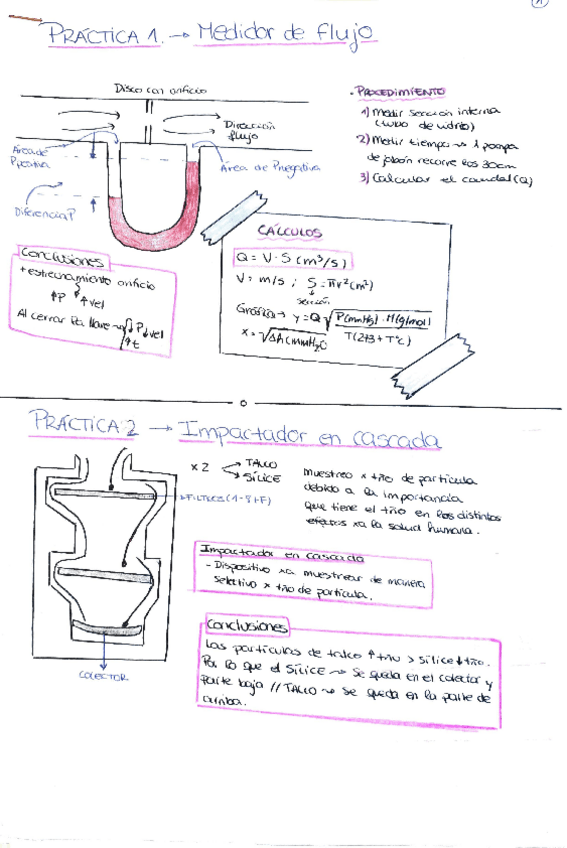 PRÁCTICA 1. → Medidor de flujo
Disco con orificio
Dirección
flujo
Área de
P positiva
Área de P negativa
Diferencia P
• PROCEDIMIENTO
1) Medir sección interna
(tubo de vidrio)
2) Medir tiempo → 1 pompa
de jabón recorre los 30cm
3) Calcular el caudal (Q)
CÁLCULOS
Q = V · S (m³/s)
V = m/s ; S = πr² (m²)
sección
Gráfica → y = Q √ P(mmHg) · M(g/mol)
T(273 + T°c)
x = √Δh(mmH₂O
Conclusiones
+ estrechamiento orificio
↑P ↑vel
Al cerrar la llave → ↓P↓vel
↑t
PRÁCTICA 2 → Impactador en cascada
x 2
TALCO
SÍLICE
FILTROS (1-8+F)
COLECTOR
muestreo x tño de partícula
debido a la importancia
que tiene el tño en los distintos
efectos xa la salud humana.
Impactador en cascada
- Dispositivo xa muestrear de manera
selectiva x tño de partícula.
Conclusiones
Las partículas de talco ↑tño > sílice ↓tño.
Por lo que el SÍLICE → se queda en el colector y
parte baja // TALCO → se queda en la parte de
arriba.